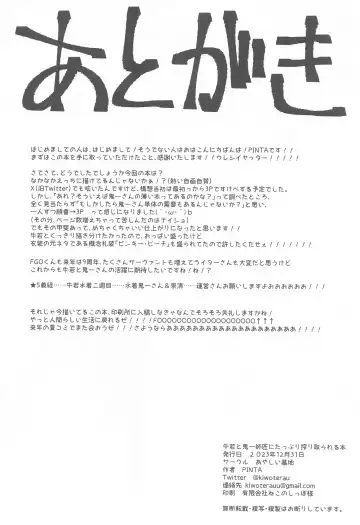 あとがき
はじめましての人は、はじめまして！そうでない人はおはこんにちばんは！PINTAです！！
まずはこの本を手に取っていただけたこと、感謝いたします！！ウレシイヤッター！！！！！
さてさて、どうでしたでしょうか今回の本は？
なかなかえっちに描けてるんじゃないかぁ！？(熱い自画自賛)
X(旧Twitter)でも呟いたんですけど、構想当初は最初っから3Pですけべする予定でした。
しかし「あれ？そういえば鬼一さんの薄い本ってあるのかな？」って調べたところ、
全く見当たらず「もしかしたら鬼一さん単体の需要もあるんじゃないか？」と思い、
一人ずつ順番→3P　って感じになりました(´・ω・`)b
(その分、ページ数増えちゃって苦しんだのはナイショ)
でもその甲斐あって、めちゃくちゃいい仕上がりになったと思います！！
牛若とくっきり描き分けたかったので、おっぱい盛ったけど
衣紋の元ネタである概念礼装「ピンキー・ビーチ」も盛られてたので許したくださぇ！！！！！！！
FGOくんも来年は9周年、たくさんサーヴァントも増えてライターさんも大変だと思うけど
これからも牛若と鬼一さんの活躍に期待したいですね！ね！？
★5義経……牛若水着二週目……水着鬼一さん＆景清……運営さんお願いしますよおおおおおお！！！
それじゃ今描いてるこの本、印刷所に入稿しなきゃなんでそろそろ失礼しますかね！
やっと人間らしい生活に戻れるぜ！！！FOOOOOOOOOOOOOOOOOOO↑↑↑
来年の夏コミでまた会おうぜ！！！さようならあああああああああああああああああああ！！！！
牛若と鬼一師匠にたっぷり搾り取られる本
発行日　2023年12月31日
サークル　あやしい墓地
作者　PINTA
Twitter　@kiwoterau
連絡先　kiwoterauu@gmail.com
印刷　有限会社ねこのしっぽ様
無断転載・複写・複製はお断りしています。